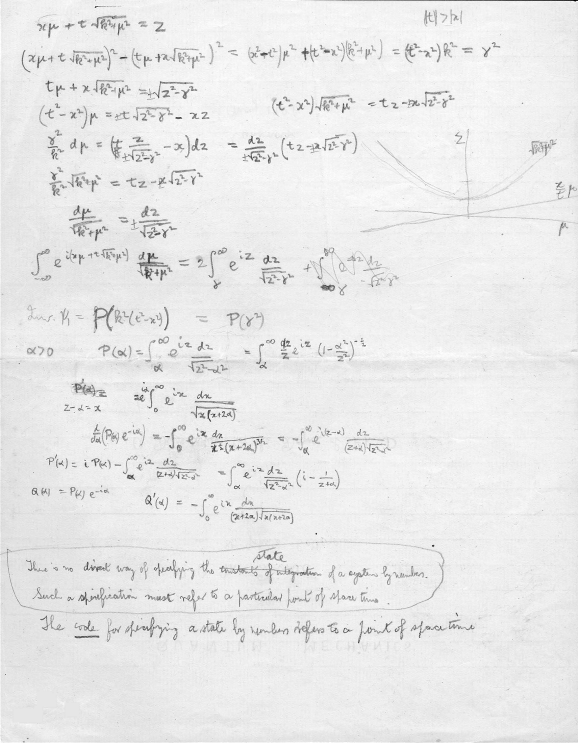 |t| > |x|
xμ + t√(k²+μ²) = z
(xμ + t√(k²+μ²))² − (tμ + x√(k²+μ²))² = (x²−t²)μ² + (t²−x²)(k²+μ²) = (t²−x²)k² = γ²
tμ + x√(k²+μ²) = ±√(z²−γ²)
(t²−x²)μ = ±t√(z²−γ²) − xz (t²−x²)√(k²+μ²) = tz ∓ x√(z²−γ²)
γ²/k² dμ = (t z/±√(z²−γ²) − x)dz = dz/±√(z²−γ²) (tz ∓ x√(z²−γ²))
γ²/k² √(k²+μ²) = tz ∓ x√(z²−γ²)
dμ/√(k²+μ²) = ± dz/√(z²−γ²)
∫_{−∞}^{∞} e^{i(xμ+t√(k²+μ²))} dμ/√(k²+μ²) = 2∫_γ^∞ e^{iz} dz/√(z²−γ²)
z
√(k²+μ²)
x/t μ
μ
= P(k²(t²−x²)) = P(γ²)
α>0 P(α) = ∫_α^∞ e^{iz} dz/√(z²−α²) = ∫_α^∞ dz/z e^{iz} (1−α²/z²)^{−½}
z−α = x = e^{iα}∫_0^∞ e^{ix} dx/√(x(x+2α))
d/dα(P(α)e^{−iα}) = −∫_0^∞ e^{ix} dx/x^{½}(x+2α)^{3/2} = −∫_α^∞ e^{i(z−α)} dz/(z+α)√(z²−α²)
P'(α) = i P(α) − ∫_α^∞ e^{iz} dz/(z+α)√(z²−α²) = ∫_α^∞ e^{iz} dz/√(z²−α²) (i − 1/(z+α))
Q(α) = P(α) e^{−iα} Q'(α) = −∫_0^∞ e^{ix} dx/(x+2α)√(x(x+2α))
There is no direct way of specifying the state of a system by numbers.
Such a specification must refer to a particular point of space time.
The code for specifying a state by numbers refers to a point of space time